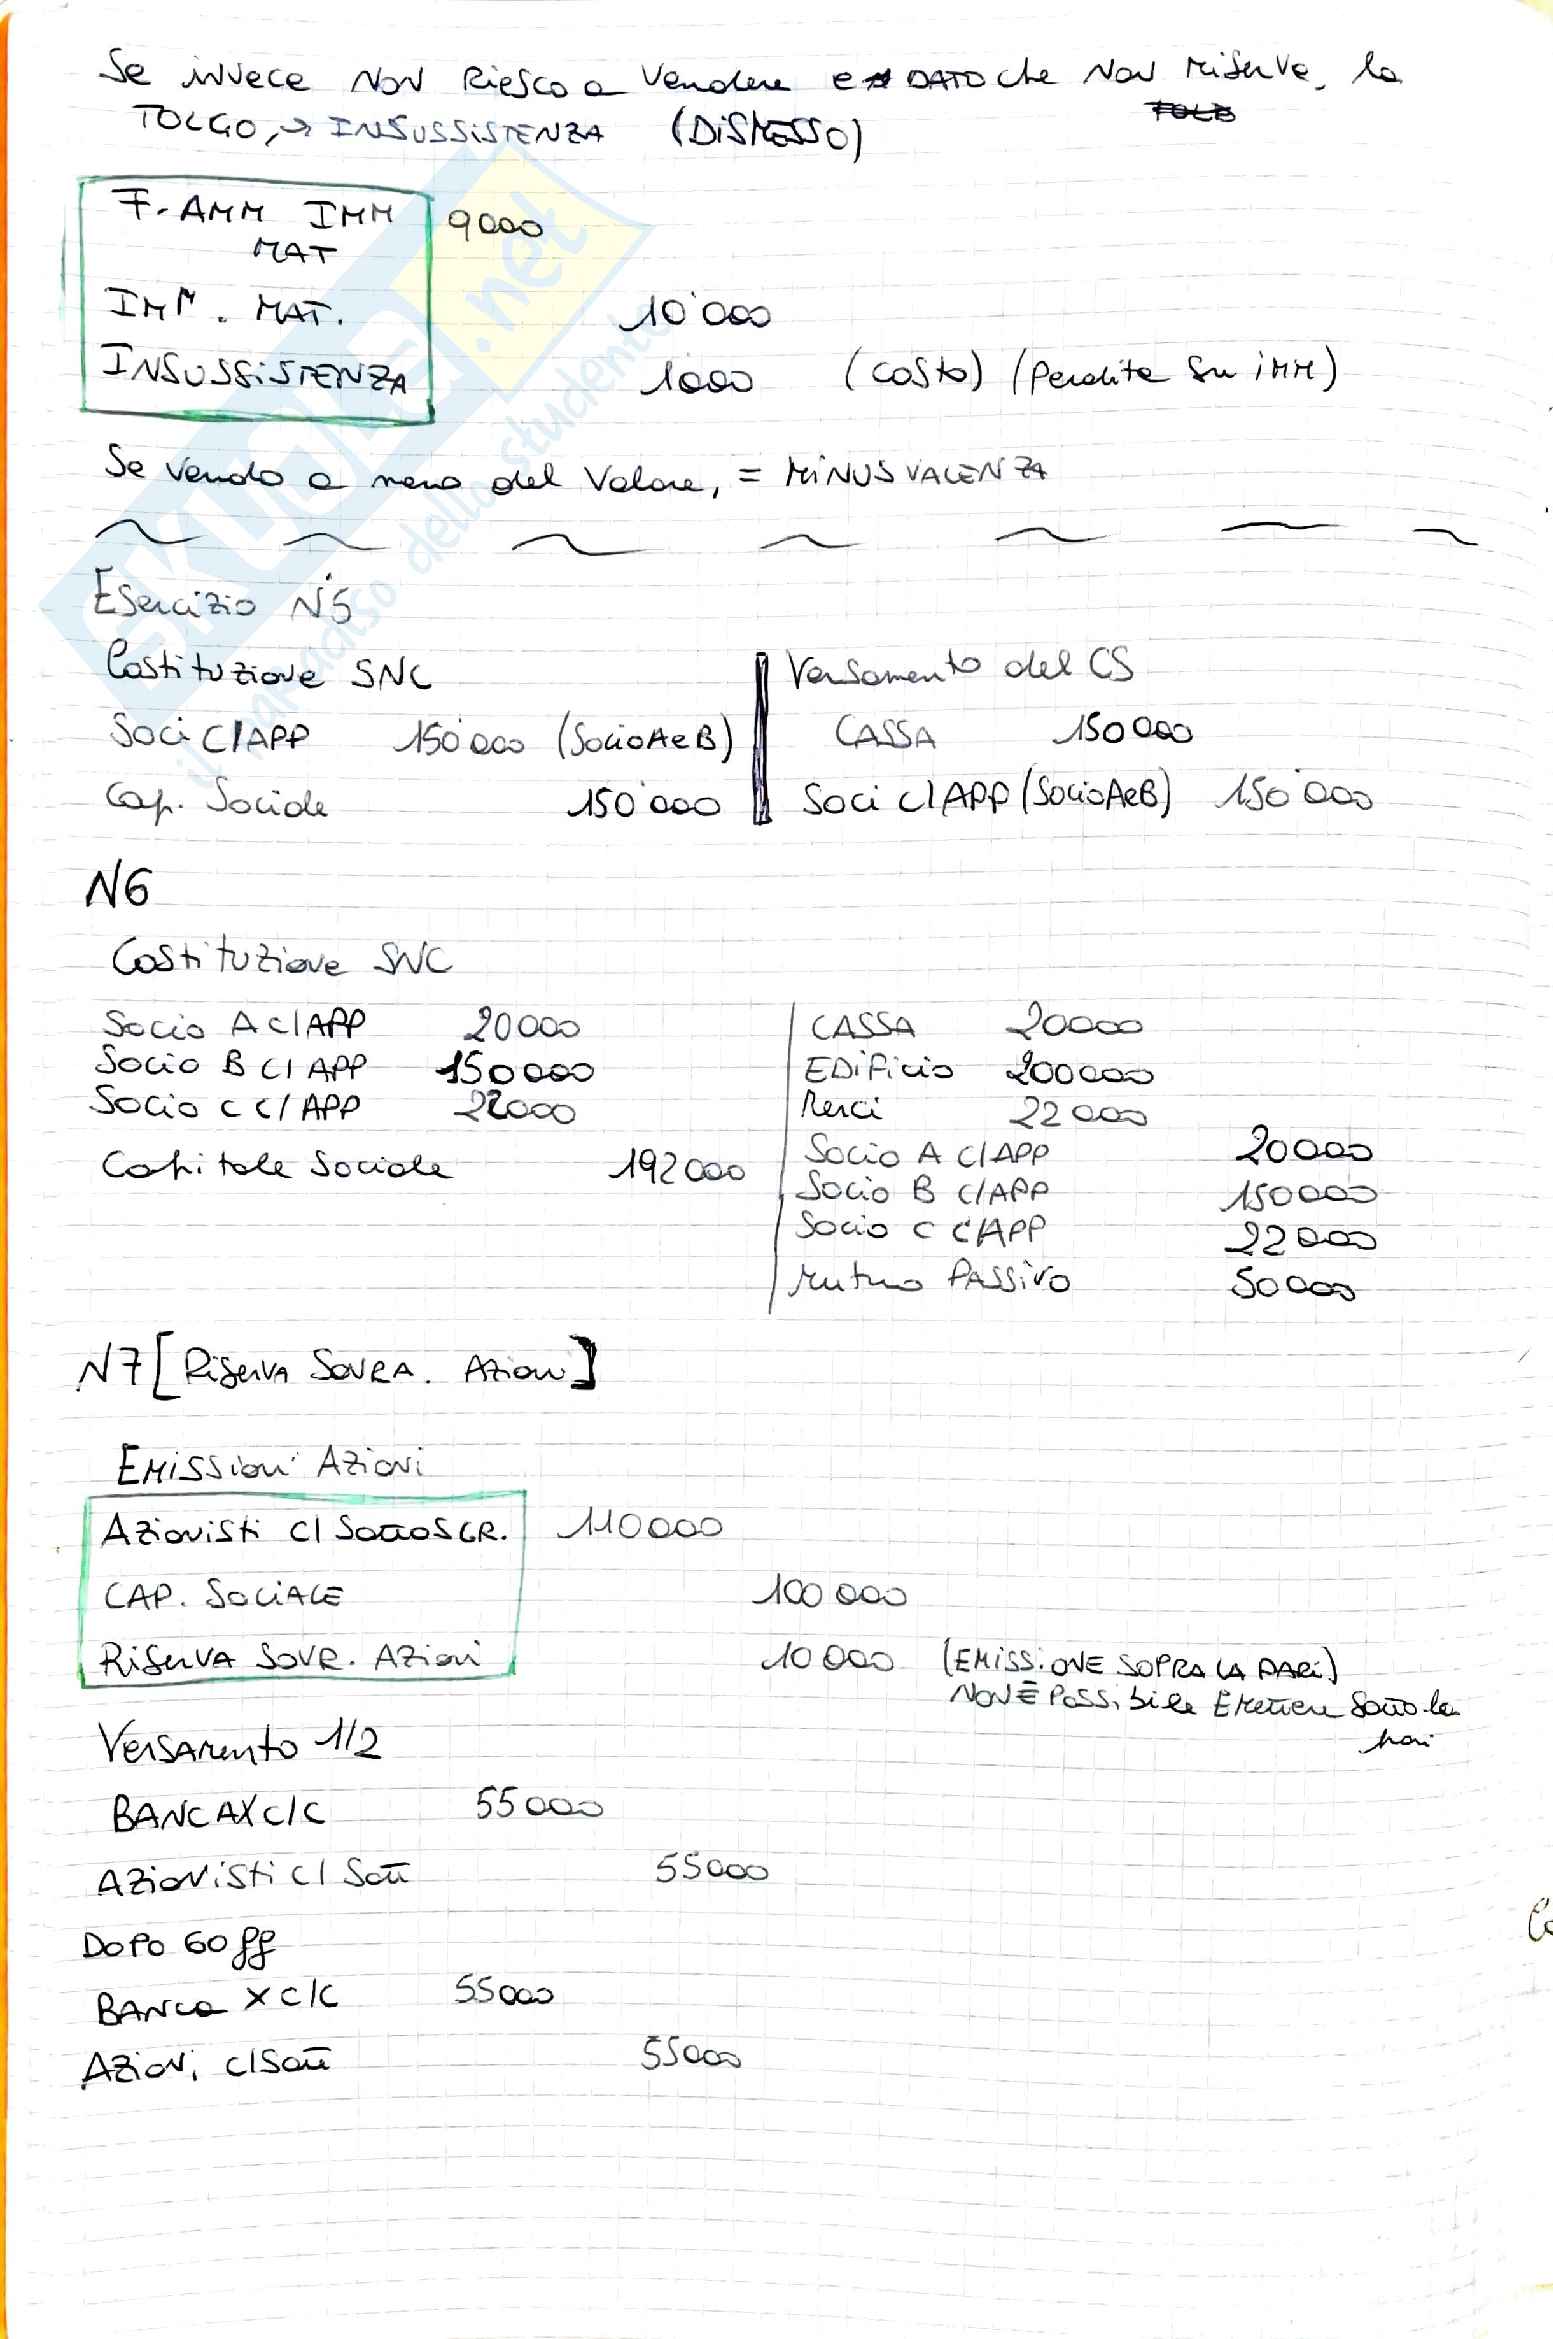 Se invece non riesco a vendere e dato che non mi serve, lo
TOLGO, → INSUSSISTENZA (DISMESSO)
F. AMM IMM 9000
MAT
IMM. MAT. 10'000
INSUSSISTENZA 1000 (costo) (perdita su imm)
Se vendo a meno del valore, = MINUSVALENZA
Esercizio N°5
Costituzione SNC
Soci C/APP 150'000 (Socio A e B)
Cap. Sociale 150'000
Versamento del CS
CASSA 150000
Soci C/APP (Socio A e B) 150'000
N6
Costituzione SNC
Socio A C/APP 20000
Socio B C/APP 150000
Socio C C/APP 22000
Capitale Sociale 192000
CASSA 20000
EDIFICIO 200000
Merci 22000
Socio A C/APP 20000
Socio B C/APP 150000
Socio C C/APP 22000
Mutuo PASSIVO 50000
N7 [RISERVA SOVRA. AZIONI]
EMISSIONI AZIONI
AZIONISTI C/SOTTOSCR. 110000
CAP. SOCIALE 100000
RISERVA SOVR. AZIONI 10000 (EMISSIONE SOPRA LA PARI)
NON È POSSIBILE EMETTERE SOTTO la
pari
VERSAMENTO 1/2
BANCA X C/C 55000
AZIONISTI C/SOTT 55000
DOPO 60 gg
BANCA X C/C 55000
AZIONI C/SOTT 55000
SKUOLA.net
il paradiso dello studente